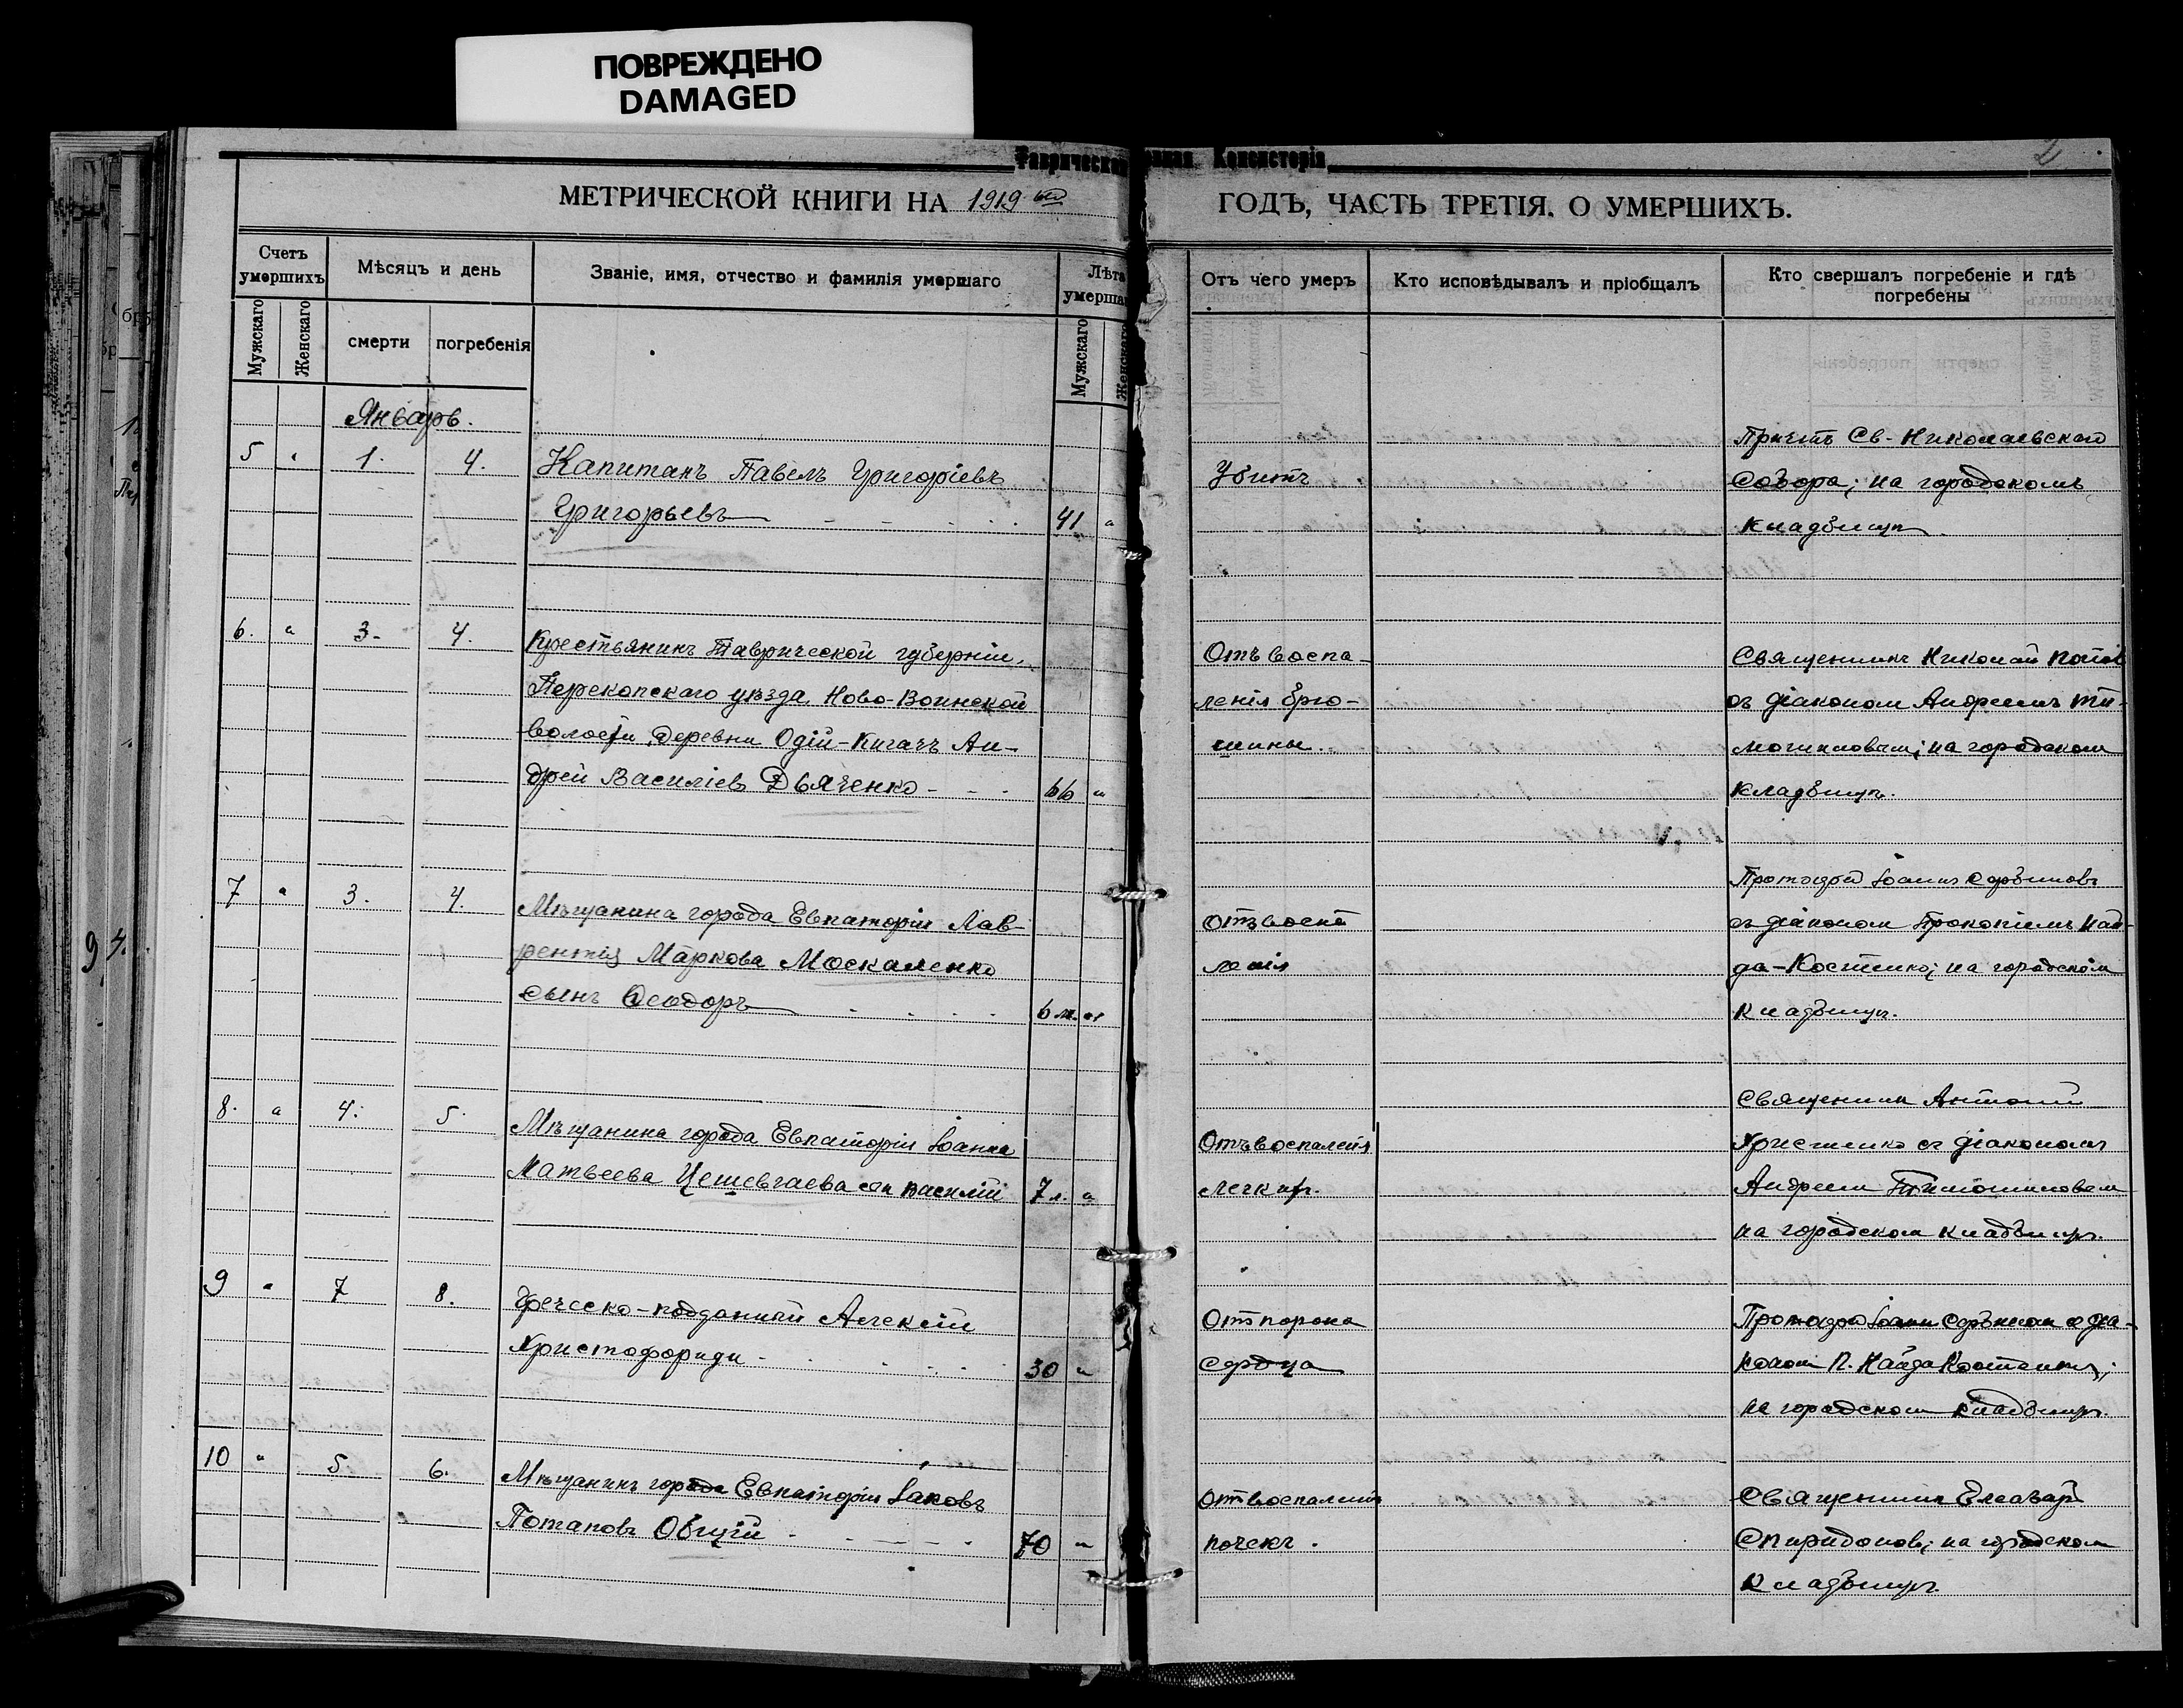 ПОВРЕЖДЕНО
DAMAGED
2
МЕТРИЧЕСКОЙ КНИГИ НА 1919 ый ГОДЪ, ЧАСТЬ ТРЕТІЯ. О УМЕРШИХЪ.
Счетъ умершихъ
Мѣсяцъ и день
Званіе, имя, отчество и фамилія умершаго
Лѣта
Отъ чего умеръ
Кто исповѣдывалъ и пріобщалъ
Кто свершалъ погребеніе и гдѣ погребены
Мужскаго
Женскаго
смерти
погребенія
Мужскаго
Женскаго
Январь.
5 " 1. 4.
Капитанъ Павелъ Григоріевъ
Григорьевъ
41 "
Убитъ
Причтъ Св. Николаевскаго
Собора; на городскомъ
кладбищѣ
6. " 3. 4.
Крестьянинъ Таврической губерніи,
Перекопскаго уѣзда, Ново-Воинской
волости, деревни Одій-Кигачъ Ан-
дрей Василіевъ Дьяченко
66 "
Отъ воспа-
ленія брю-
шины.
Священникъ Николай
съ діакономъ Андреемъ Ти-
мошиновым; на городском
кладбищѣ.
7 " 3. 4.
Мѣщанина города Евпаторіи Лав-
рентія Маркова Москаленко
сынъ Ѳеодоръ
6 м. "
Отъ воспа
ленія
Протоіерей Іоаннъ Сербиновъ
съ діаконом Прокопіемъ Най-
да-Костенко; на городском
кладбищѣ.
8. " 4. 5.
Мѣщанина города Евпаторіи Іоанна
Матвеева сын Василій
7 л. "
Отъ воспаленія
легких.
Священник Антоній
Христенко съ діакономъ
Андреем Тимошиновым
на городском кладбищѣ.
9 " 7 8.
Греческо-подданный Алексій
Христофориди
30 "
Отъ порока
сердца
Протоіерей Іоанн Сербинов с діа-
коном П. Найда Костенко;
на городском кладбищѣ.
10 " 5. 6.
Мѣщанинъ города Евпаторіи Іаковъ
Потаповъ Общій
70 "
От воспаленія
почекъ.
Священник Елеазар
Спиридонов; на городском
кладбищѣ.